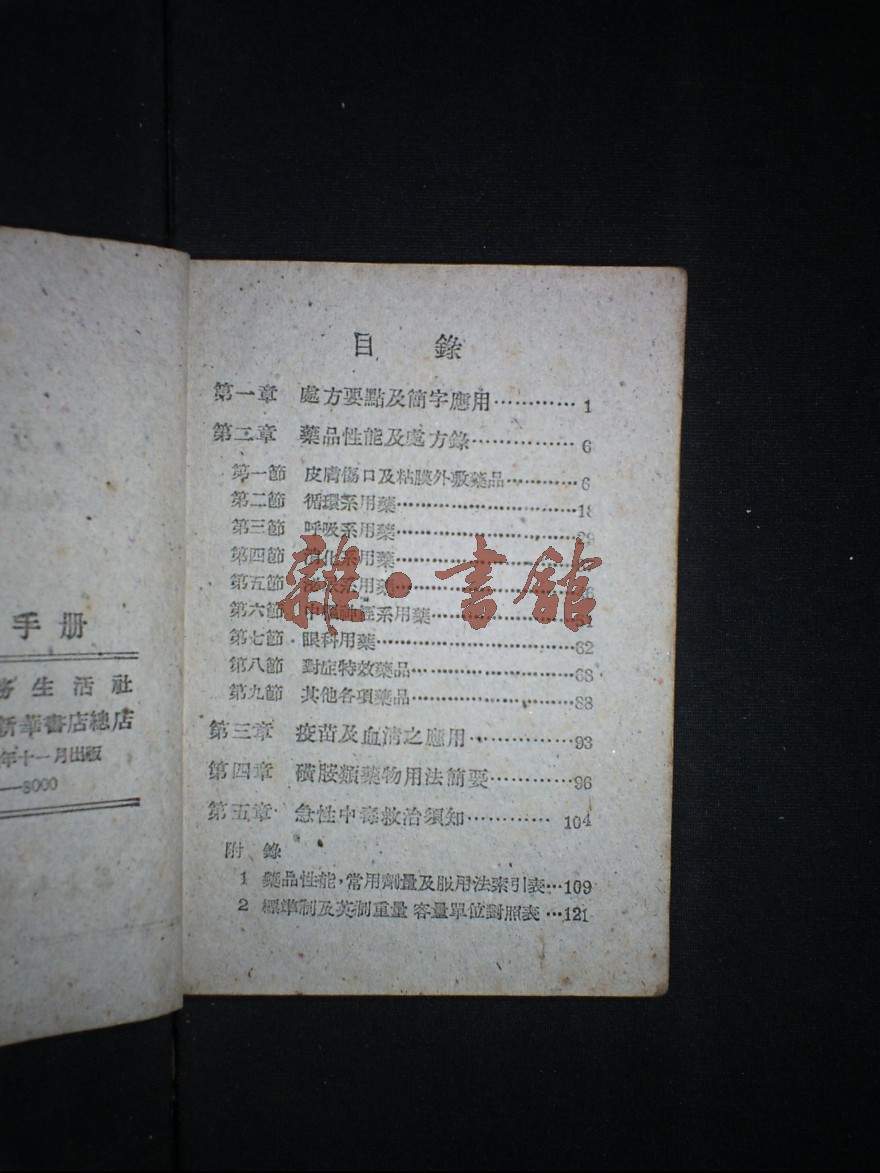 手册
生活社
新華書店總店
年十一月出版
—3000
目 錄
第一章 處方要點及簡字應用…………1
第二章 藥品性能及處方錄……………6
第一節 皮膚傷口及粘膜外敷藥品……6
第二節 循環系用藥……18
第三節 呼吸系用藥……29
第四節 消化系用藥……
第五節 用藥……6
第六節 中樞神經系用藥……51
第七節 眼科用藥……62
第八節 對症特效藥品……68
第九節 其他各項藥品……88
第三章 疫苗及血清之應用……93
第四章 磺胺類藥物用法簡要……96
第五章 急性中毒救治須知……104
附 錄
1 藥品性能,常用劑量及服用法索引表…109
2 標準制及英制重量 容量單位對照表…121
雜·書館